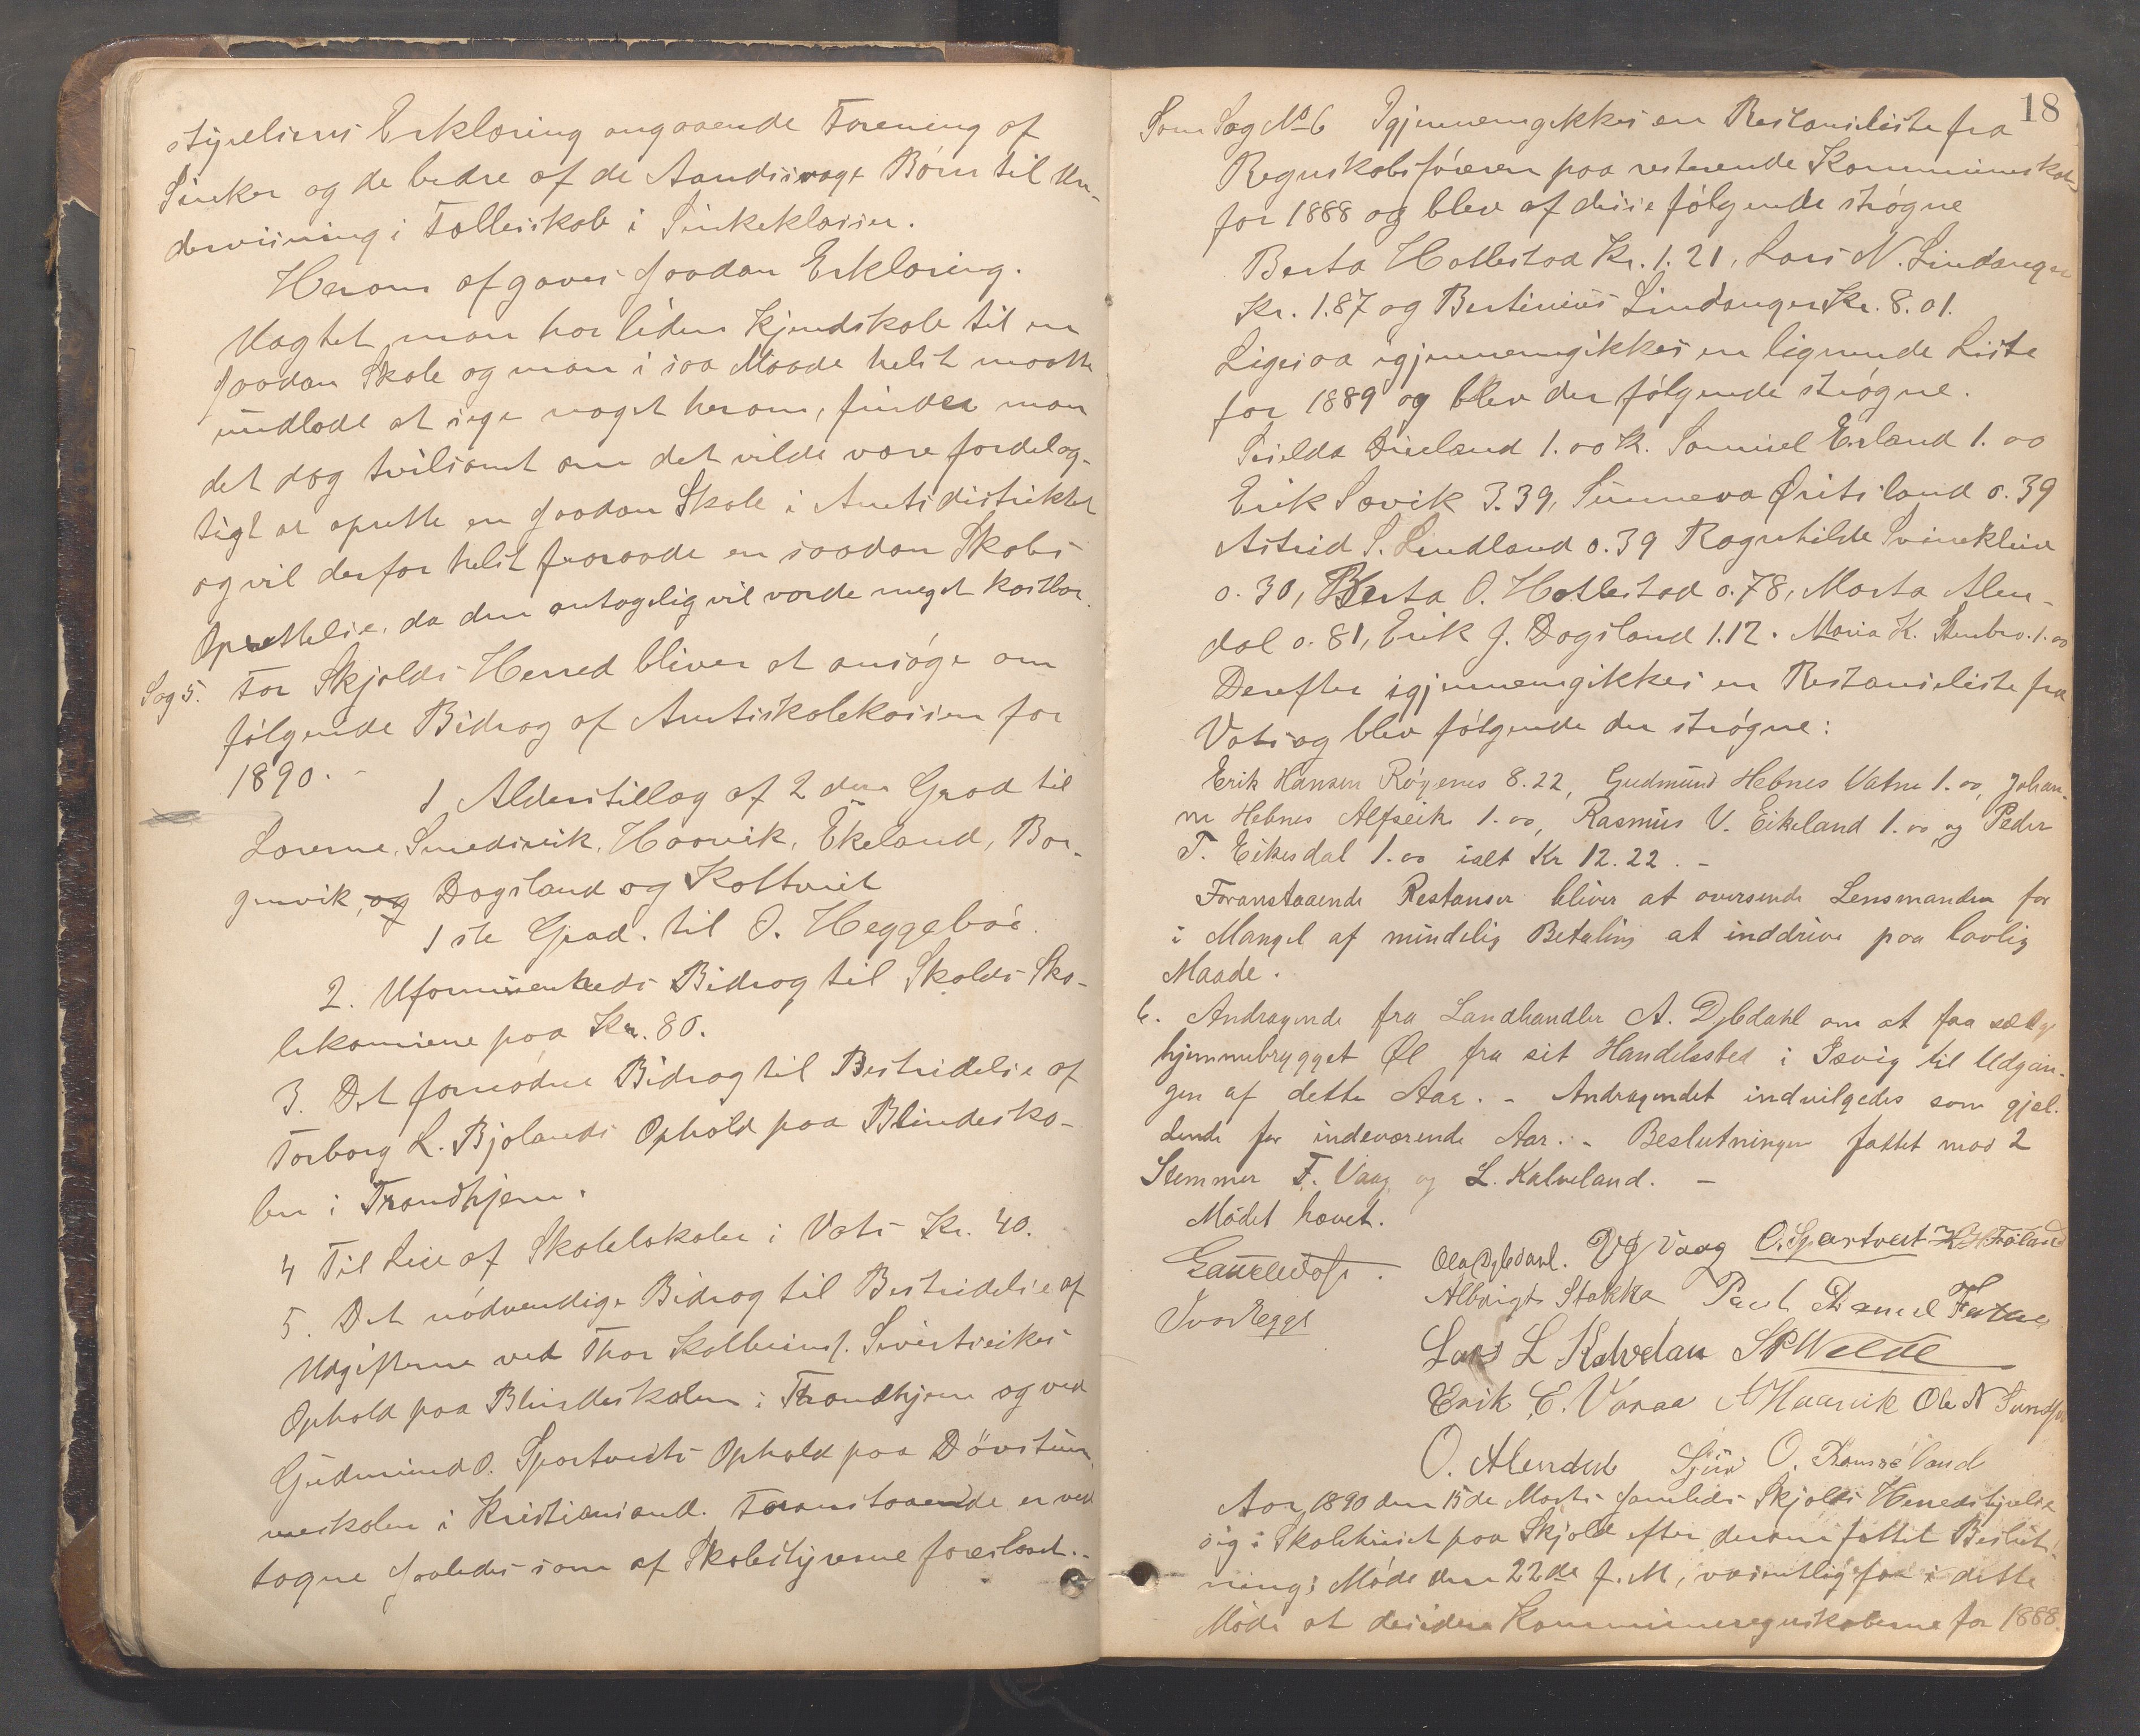 styrelsens Erklæring angaaende Forening af
Sinker og de bedre af de Aandssvage Børn til Un-
dervisning i Fællesskab i Sinkeklasser.
Herom afgaves saadan Erklæring.
Uagtet man har liden Kjendskab til en
saadan Skole og man i saa Maade helst maatte
undlade at sige noget herom, finder man
det dog tvilsomt om det vilde være fordelag-
tigt at oprette en saadan Skole i Amtsdistriktet
og vil derfor helst fraraade en saadan Skoles
Oprettelse, da den antagelig vil vorde meget kostbar.
Sag 5. For Skjolds Herred bliver at ansøge om
følgende Bidrag af Amtsskolekassen for
1890. -
1 Alderstillæg af 2den Grad til
Lærerne, Smedsvik, Haavik, Ekeland, Bor-
genvik, og Dagsland og Koltveit
1ste Grad. til O. Heggebø.
2. Uformuenheds Bidrag til Skolds Sko-
lekasserne paa Kr. 80.
3. Det fornødne Bidrag til Bestridelse af
Torborg L. Bjolands Ophold paa Blindesko-
len i Trondhjem.
4 Til Leie af Skolelokaler i Vats Kr. 40.
5. Det nødvendige Bidrag til Bestridelse af
Udgifterne ved Thor Kolbeins Sivertseikes
Ophold paa Blindeskolen i Trondhjem og ved
Gudmund O. Spartveits Ophold paa Døvstum
meskolen i Kristiansand. Foranstaaende er ved
tagne saaledes som af Skolestyrerne foreslaaet.-
18
Som Sag No 6 Igjennemgikkes en Restanseliste fra
Regnskabsføreren paa resterende Kommuneskat
for 1888 og blev af disse følgende strøgne
Berta Hallestad Kr. 1.21, Lars N. Lindanger
Kr. 1.87 og Bertinius Lindanger Kr. 8.01.
Ligesaa igjennemgikkes en lignende Liste
for 1889 og blev der følgende strøgne.
1.00 K. Samuel Erland 1.00
Erik Sævik 3.39, Sunneva Øritsland 0.39
Astrid S. Lindland 0.39 Ragnhilde Svinekleiv
0.30, Berta O. Hallestad 0.78, Marta Alen-
dal 0.81, Erik J. Dagsland 1.12. Maria K. Stenbro. 1.00
Derefter igjennemgikkes en Restanseliste fra
Vats og blev følgende der strøgne:
Erik Hansen Røgenes 8.22, Gudmund Hebnes Vatne 1.00, Johan-
ne Hebnes Alfseike 1.00, Rasmus V. Eikeland 1.00 og Peder
T. Eikesdal 1.00 ialt Kr 12.22. -
Foranstaaende Restanser bliver at oversende Lensmanden for
i Mangel af mindelig Betaling at inddrive paa lovlig
Maade.
6. Andragende fra Landhandler A. Dybdahl om at faa sælge
hjemmebrygget Øl fra sit Handelssted i Isvig til Udgan-
gen af dette Aar. - Andragendet indvilgedes som gjel-
dende for indeværende Aar. - Beslutningen fattet mod 2
Stemmer F. Vaag og L. Kalveland. -
Mødet hævet.
Ola Dybdahl. Vaag O. Spartveit
Albrigt Stakka Paul Daniel
Ivar Egge
Lars L Kalvelan Welde
Erik E. Varaa Haavik Ole N
O. Alendal Sjur O. Ramsland
Aar, 1890 den 15de Marts samledes Skjolds Herredstyrelse
sig i Skolehuset paa Skjold efter derom fattet Beslut-
ning i Møde den 22de f. M, væsentlig for i dette
Møde at desidere Kommuneregnskaberne for 1888.